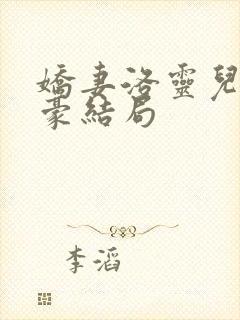 嬌妻洛靈兒
豪結局
李滔